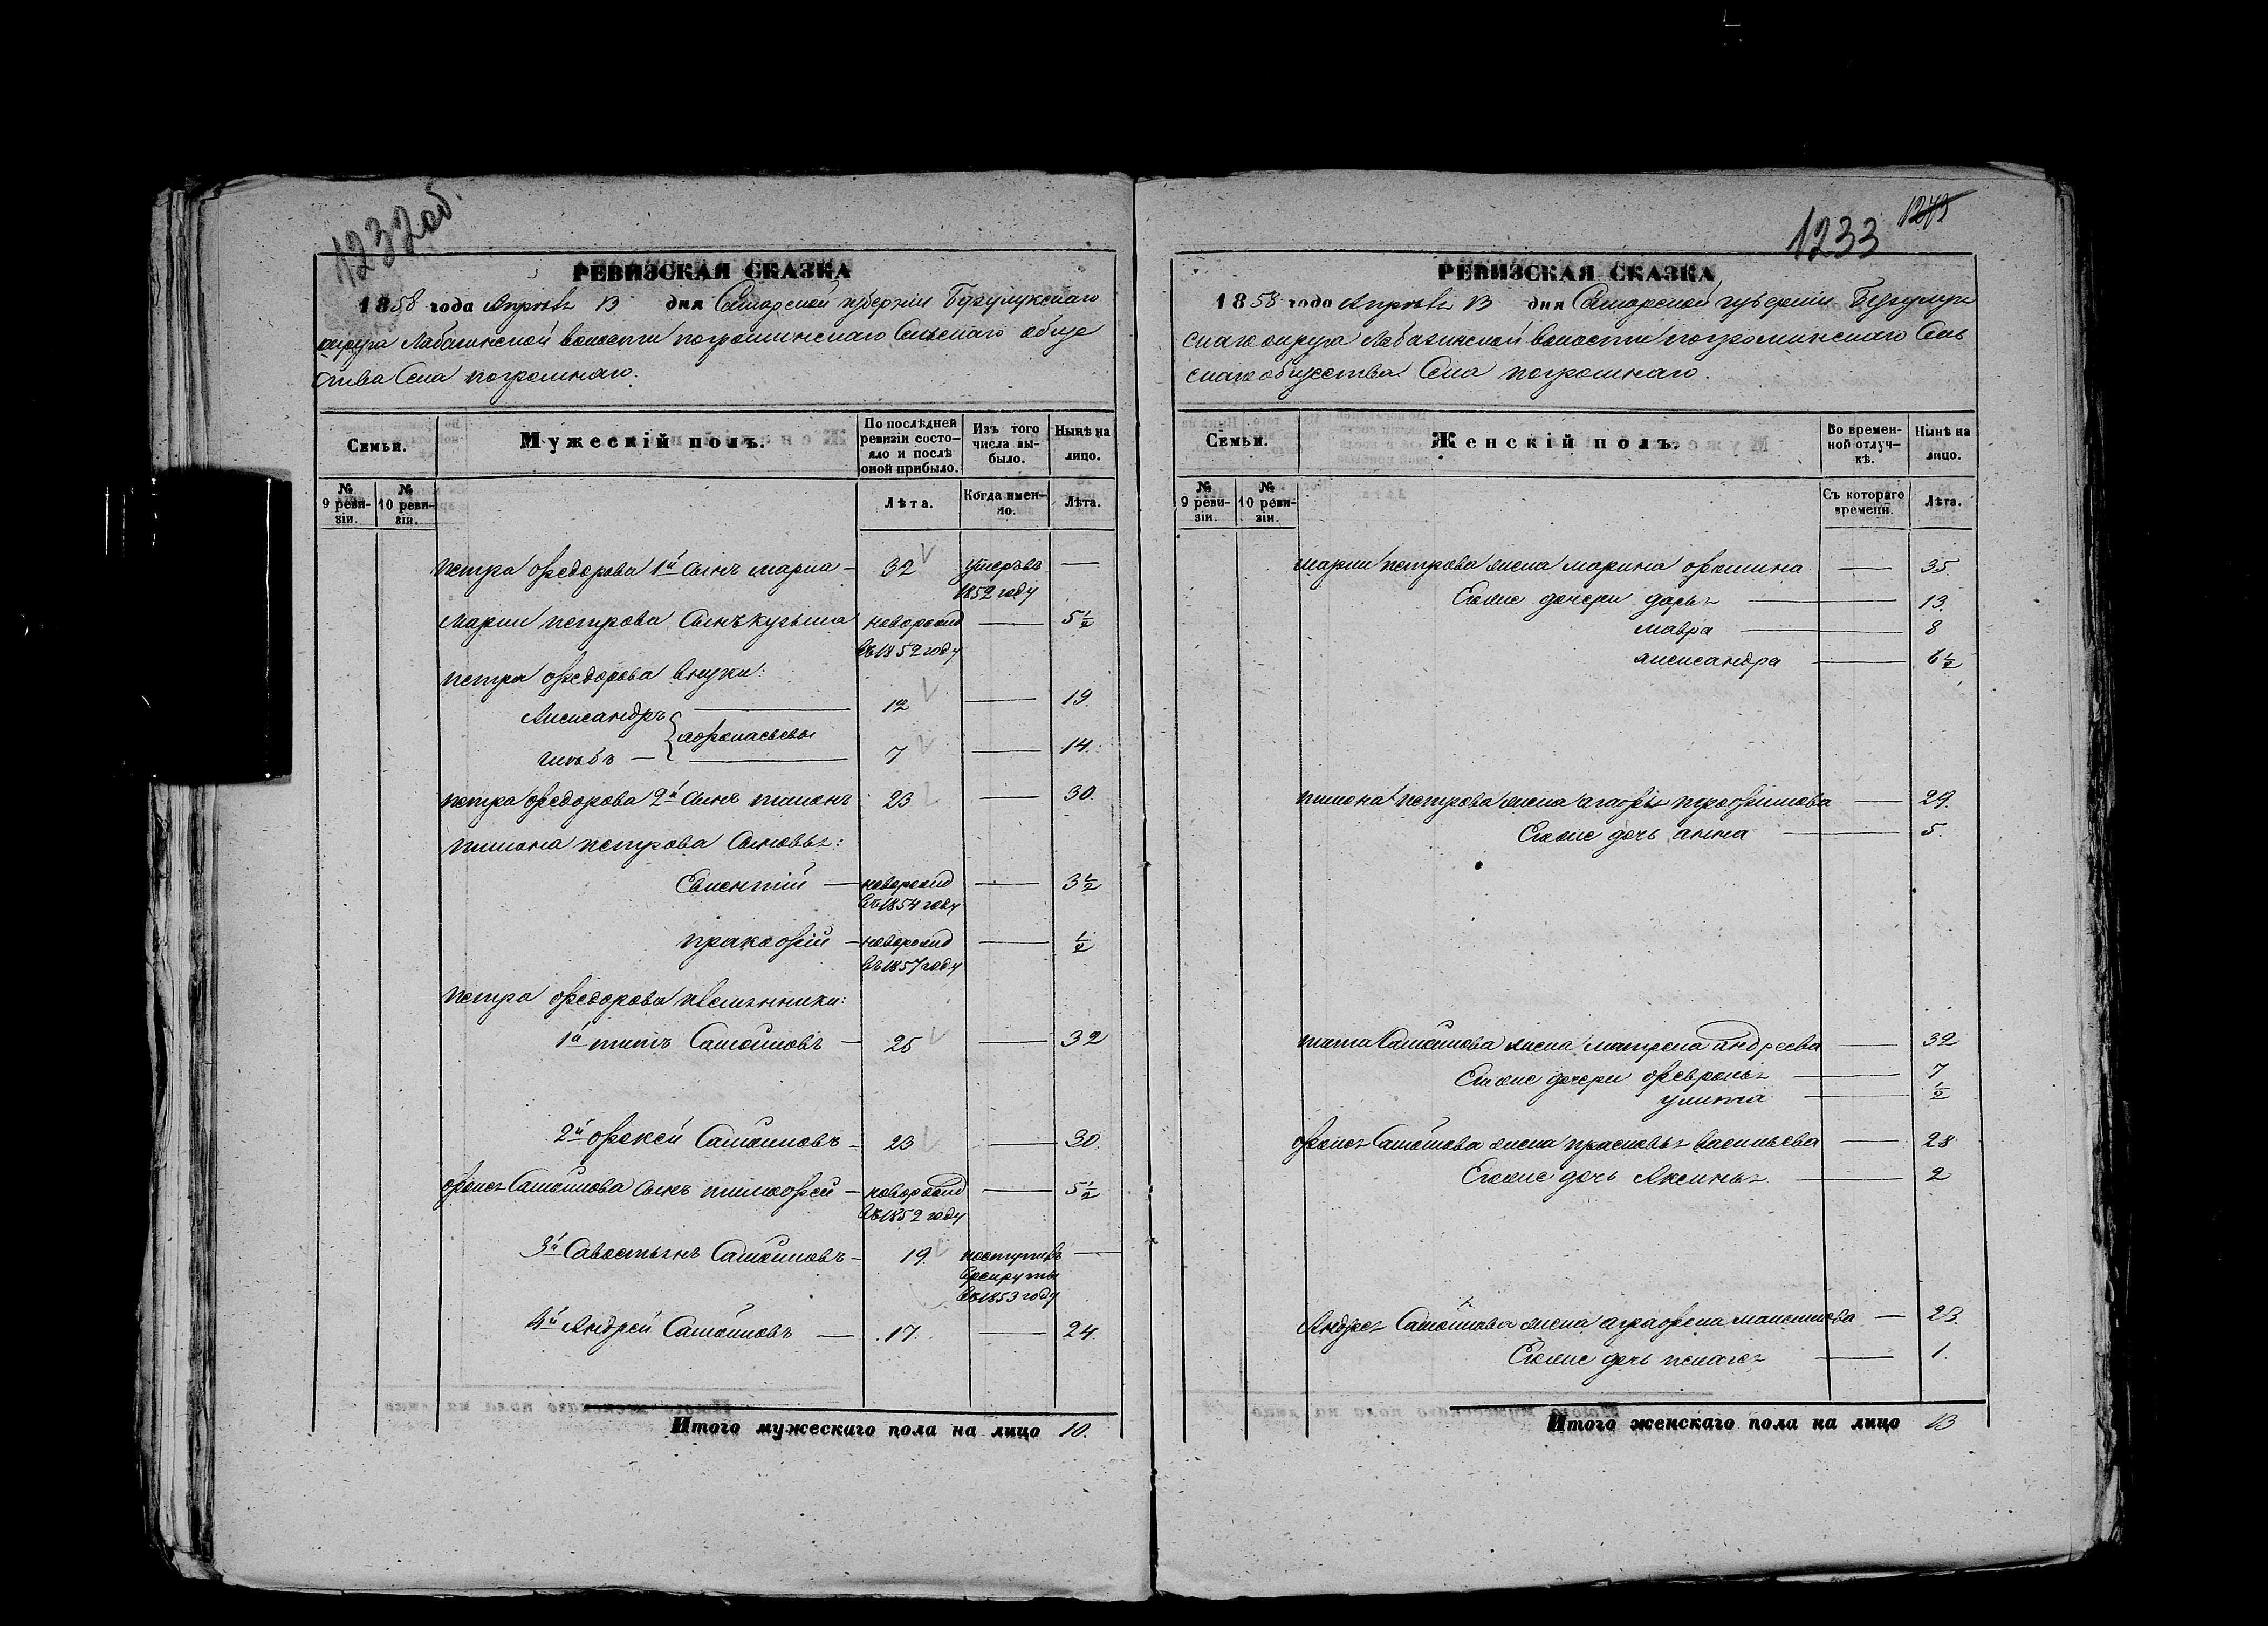 1232 об.
РЕВИЗСКАЯ СКАЗКА
1858 года Апрѣля 13 дня Самарской губерніи Бузулукскаго
округа Лабазинской волости погроминскаго Сельскаго обще
ства Села погромнаго.
Семьи.
Мужескій полъ.
По послѣдней ревизіи состояло и послѣ оной прибыло.
Изъ того числа выбыло.
Нынѣ на лицо.
№ 9 ревизіи.
№ 10 ревизіи.
Лѣта.
Когда именно.
Лѣта.
петра федорова 1й сынъ марка — 32 умеръ въ —
1852 году
марки петрова Сынъ кузьма новорожд — 5½
въ 1852 году
петра федорова внуки:
Александръ — 12 — 19
афонасьевы
глебъ — 7 — 14.
петра федорова 2й сынъ тимонъ 23 — 30.
тимона петрова Сыновья:
— новорожд — 3½
въ 1854 году
пракофій — новорожд — ½
въ 1857 году
петра федорова племянники:
1й титъ Самойловъ — 25 — 32
2й фокей Самойловъ — 23 — 30.
фокея Самойлова сынъ тимофей — новорожд — 5½
въ 1852 году
3й Савостьянъ Самойловъ — 19. поступилъ —
врекруты
въ 1853 году
4й Андрей Самойловъ — 17. — 24.
Итого мужескаго пола на лицо 10.
1233
1243
РЕВИЗСКАЯ СКАЗКА
1858 года Апрѣля 13 дня Самарской губерніи Бузулук
скаго округа Лабазинской волости погроминскаго Сель
скаго общества Села погромнаго.
Семьи.
Женскій полъ.
Во временной отлучкѣ.
Нынѣ на лицо.
№ 9 ревизіи.
№ 10 ревизіи.
Съ котораго времени.
Лѣта.
марки петрова жена марина фомина — 35.
Егоже дочери дарья — 13.
мавра — 8
александра — 6½
тимона петрова жена агафья трофимова — 29.
Егоже дочь анна — 5.
тита Самойлова жена матрена андреева — 32
Егоже дочери февронья — 7
улита — ½
фокея Самойлова жена прасковья васильева — 28
Егоже дочь Аксинья — 2
Андрея Самойлова жена аграфена максимова — 23.
Егоже дочь пелагея — 1.
Итого женскаго пола на лицо 13